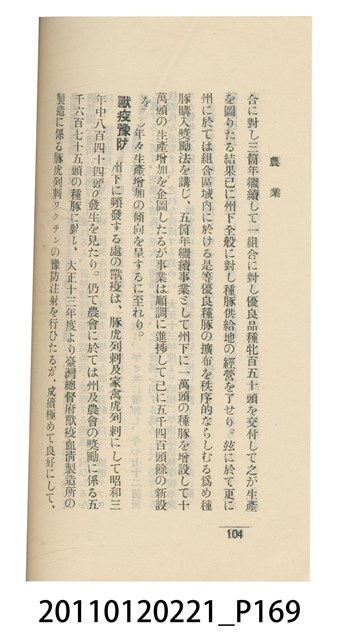 農業
合に對し三箇年繼續して一組合に對し優良品種牝百五十頭を交付して之が生產
を圖りたる結果已に州下全般に對し種豚供給地の經營を了せり。玆に於て更に
州に於ては組合區域內に於ける是等優良種豚の擴布を秩序的ならしむる爲め種
豚購入奬勵法を講じ、五箇年繼續事業として州下に一萬頭の種豚を增設して十
萬頭の生產增加を企圖したるが事業は順調に進捗して已に五千四百頭餘の新設
を 年々生產增加の傾向を呈するに至れり。
獸疫豫防 州下に頻發する處の獸疫は、豚虎列刺及家禽虎列刺にして昭和三
年中八百四十四頭の發生を見たり。仍て農會に於ては州及農會の奬勵に係る五
千六百七十五頭の種豚に對し、大正十三年度より臺灣總督府獸疫血淸製造所の
製造に係る豚虎列刺ワクチンの豫防注射を行ひたるが、成績極めて良好にして、
104
20110120221_P169